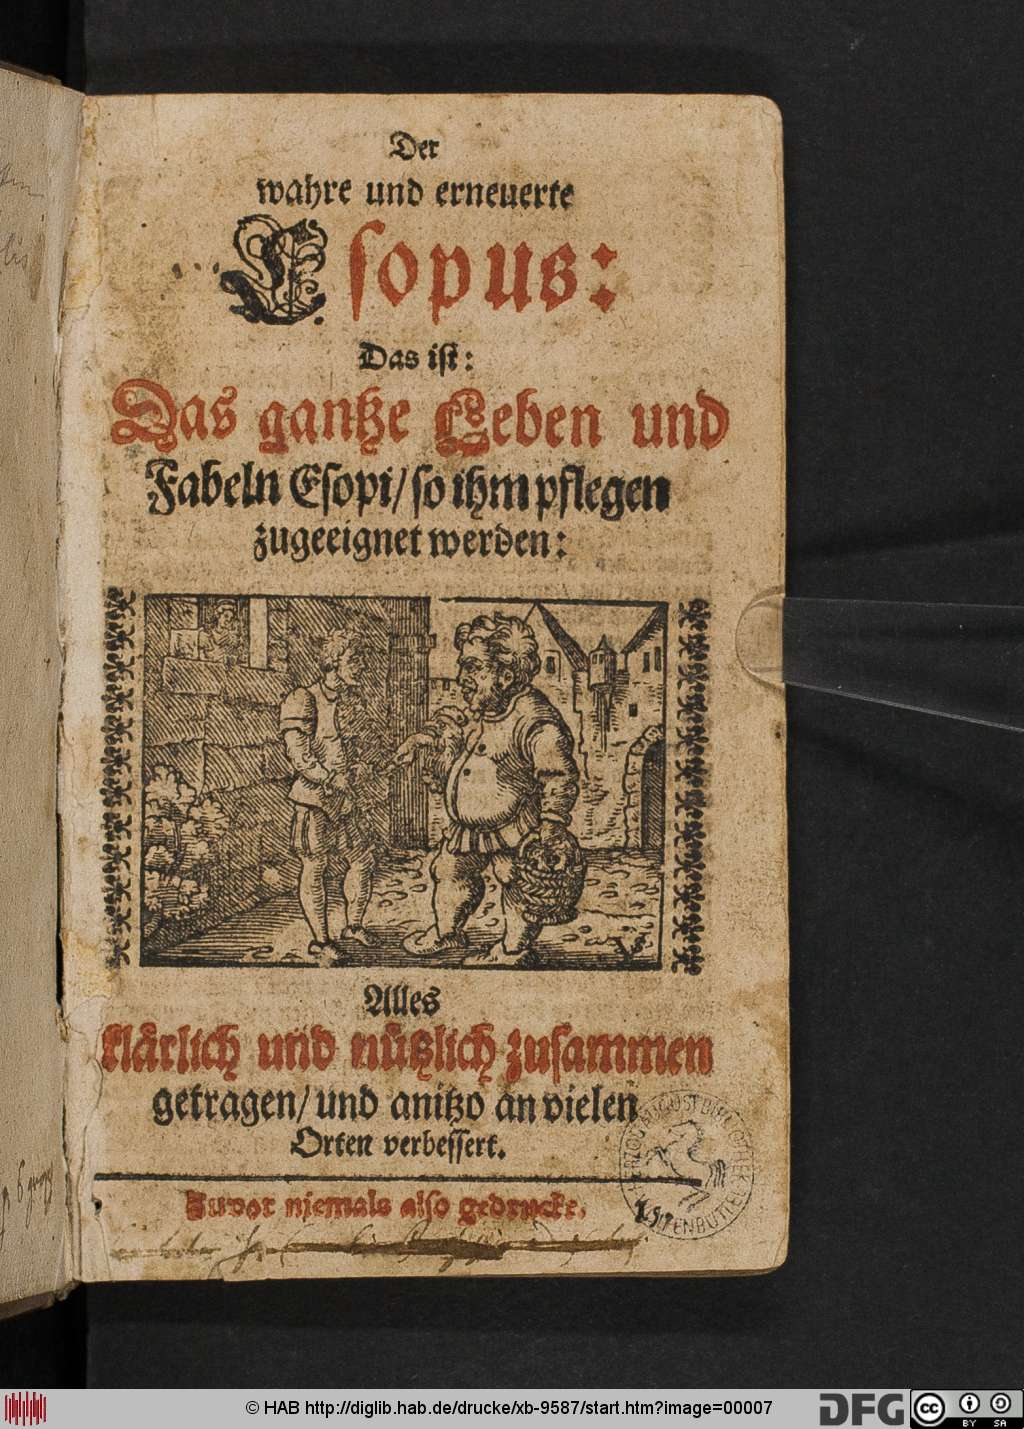 Der
wahre und erneuerte
Esopus:
Das ist:
Das gantze Leben und
Fabeln Esopi/ so ihm pflegen
zugeeignet werden:
Alles
klärlich und nützlich zusammen
getragen/ und anitzo an vielen
Orten verbessert.
Zuvor niemals also gedruckt.
HERZOG AUGUST BIBLIOTHEK
WOLFENBÜTTEL
© HAB http://diglib.hab.de/drucke/xb-9587/start.htm?image=00007
DFG
cc BY SA